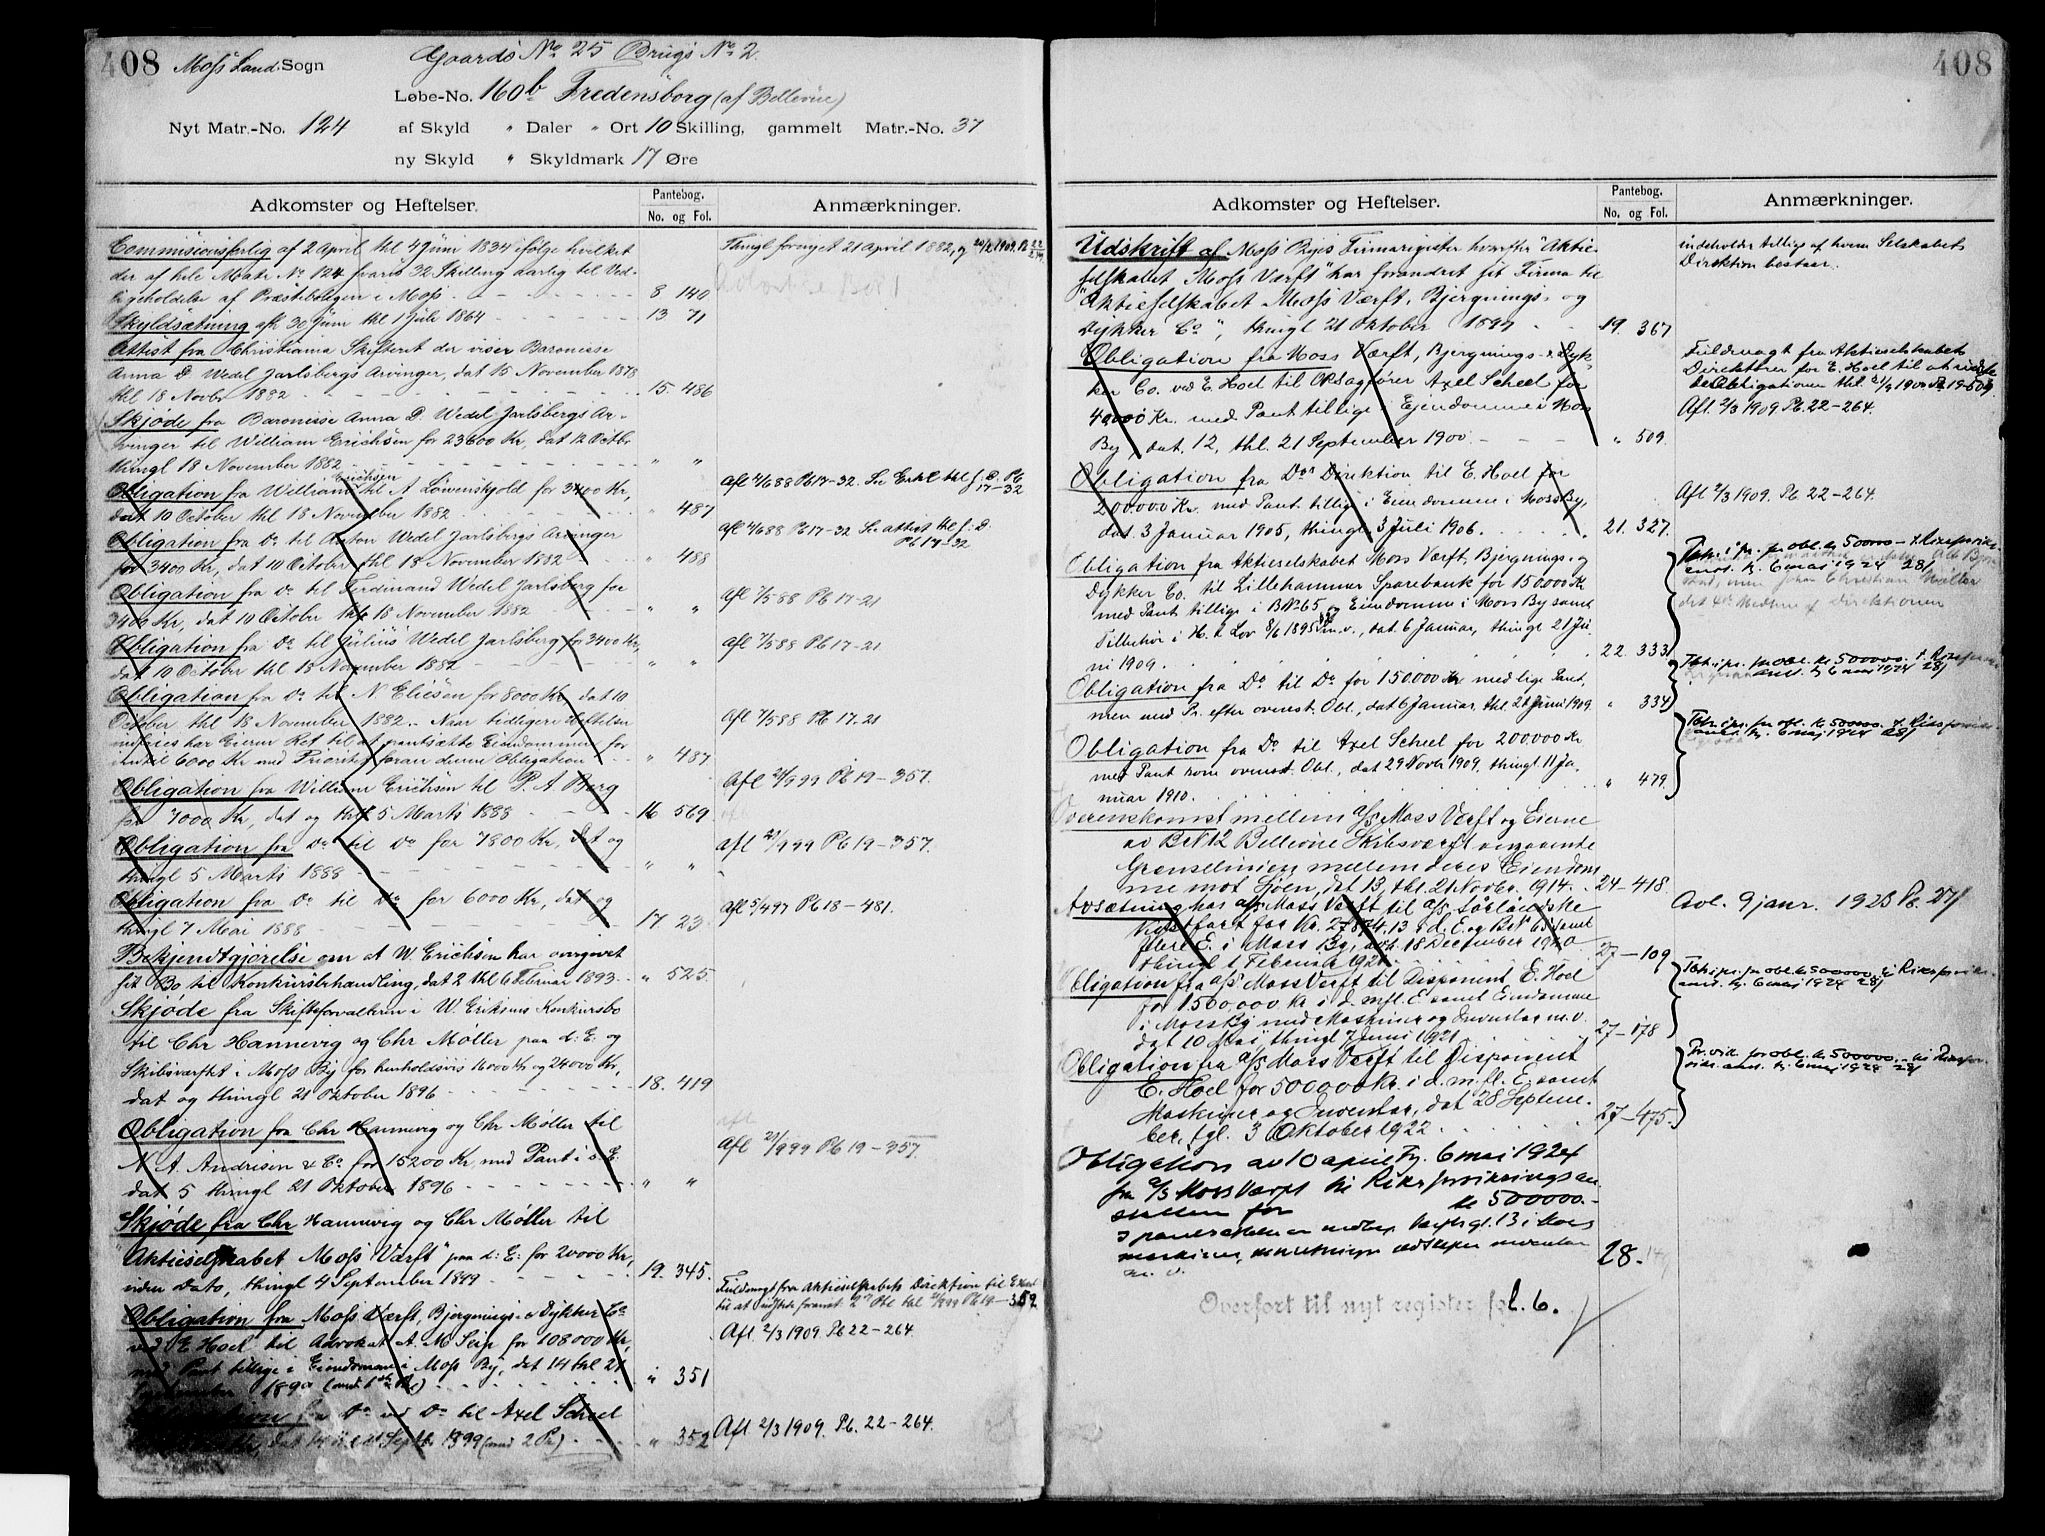 408 Moss Land. Sogn
Gaards No 25 Brugs No 2.
Løbe-No. 160b Fredensborg (af Bellevue)
Nyt Matr.-No. 124 af Skyld " Daler " Ort 10 Skilling, gammelt Matr.-No. 37
ny Skyld " Skyldmark 17 Øre
Adkomster og Heftelser. Pantebog. No. og Fol. Anmærkninger.
Commisionsforlig af 2 April thl 4 Juni 1834 ifølge hvilket
der af hele Matr No 124 svares 32 Skilling aarlig til Ved-
ligeholdelse af Præstebolligen i Moss. 8 140
Thingl fornyet 21 April 1882, og
Skyldsætning afh 30 Juni thl 1 Juli 1864 13 71
Attest fra Christiania Skifteret der viser Baronesse
Anna D. Wedel Jarlsbergs Arvinger, dat 15 November 1878
thl 18 Novbr 1882 15. 486
Skjøde fra Baronesse Anna D. Wedel Jarlsbergs Ar-
vinger til William Erichsen for 23600 Kr, dat 12 Octbr.
thingl 18 November 1882 " "
Obligation fra William Erichsen til A Løvenskjold for 3400 Kr,
dat 10 October thl 18 November 1882 " 487
Afl 4/6 88 Pb 17-32. Se Erkl thl s. D. Pb 17-32
Obligation fra Do til Anton Wedel Jarlsbergs Arvinger
for 3400 Kr, dat 10 October thl 18 November 1882 " 488
afl 4/6 88 Pb 17-32 Se attest thl s. D. Pb 17-32
Obligation fra Do til Ferdinand Wedel Jarlsberg for
3400 Kr, dat 10 October thl 18 November 1882 " "
afl 7/5 88 Pb 17-21
Obligation fra Do til Julius Wedel Jarlsberg for 3400 Kr,
dat 10 October thl 18 November 1882 " "
afl 7/5 88 Pb 17-21
Obligation fra Do til N Eliesen for 8000 Kr, dat 10
October thl 18 November 1882. Naar tidligere Heftelser
indfries har Eieren Ret til at pantsætte Eiendommen for
indtil 6000 Kr med Prioritet foran denne Obligation " 487
afl 7/5 88 Pb 17-21
Obligation fra William Erichsen til P. A. Berg
for 7000 Kr, dat og thl 5 Marts 1888 16 569
Afl 21/9 99 Pb 19-357.
Obligation fra Do til Do for 7800 Kr, dat og
thingl 5 Marts 1888 " "
afl 21/9 99 Pb 19-357.
Obligation fra Do til Do for 6000 Kr, dat og
thingl 7 Mai 1888 17 23.
afl 5/4 97 Pb 18-481.
Bekjendtgjørelse om at W. Erichsen har overgivet
sit Bo til Konkursbehandling, dat 2 thl 6 Februar 1893 " 525.
Skjøde fra Skifteforvalteren i W. Eriksens Konkursbo
til Chr Hannevig og Chr Møller paa d: E: og
Skibsværftet i Moss By for henholdsvis 16000 Kr og 24000 Kr,
dat og thingl 21 Oktober 1896 18. 419
Obligation fra Chr Hannevig og Chr Møller til
N. A. Andresen & Co for 15200 Kr, med Pant i d: E:
dat 5 thingl 21 Oktober 1896 " "
Afl 21/9 99 Pb 19-357.
Skjøde fra Chr Hannevig og Chr Møller til
"Aktieselskabet Moss Værft" paa d: E: for 20000 Kr,
uden Dato, thingl 4 September 1899 19. 345.
Obligation fra Moss Værft, Bjergnings- & Dykker Co
ved E Hoel til Advokat A. M Seip for 108000 Kr,
med Pant tillige i Eiendomme i Moss By, dat 14 thl 21
189 " 351
Fuldmagt fra Aktieselskabets Direktion til E Hoel
til at udstede 2 Obl thl 21/9 99 Pb 19-359.
Afl. 2/3 1909. Pb 22-264.
fra Do ved Do til Axel Scheel
dat 14 thl 21 Septbr 1899 (med 2 Pr) " 352
Afl 2/3 1909. Pb. 22-264.
408
Adkomster og Heftelser. Pantebog. No. og Fol. Anmærkninger.
Udskrift af Moss Byes Firmaregister hvorefter "Aktie-
selskabet Moss Værft" har forandret sit Firma til
"Aktieselskabet Moss Værft, Bjergnings- og
Dykker Co", thingl 21 Oktober 1899 19. 367
indeholder tillige af hvem Selskabets
Direktion bestaar.
Obligation fra Moss Værft, Bjergnings- & Dyk-
ker Co. ved E. Hoel til Oksagfører Axel Scheel for
40000 Kr. med Pant tillige i Eiendomme i Moss
By, dat. 12, thl. 21 September 1900 " 509.
Fuldmagt fra Aktieselskabets
Direktører for E. Hoel til at udste-
de Obligationen thl. 21/9 1900 Pb 19-509.
Afl. 2/3 1909 Pb. 22-264.
Obligation fra Dos Direktion til E. Hoel for
200.000 Kr. med Pant tillige i Eiendomme i Moss By,
dat. 3 Januar 1905, thingl. 3 Juli 1906. 21. 327.
Afl 2/3 1909. Pb 22-264.
Obligation fra Aktieselskabet Moss Værft, Bjergnings- og
Dykker Co. til Lillehammer Sparebank for 150.000 Kr
med Pant tillige i B No 65 og Eiendomme i Moss By samt
Tilbehør i H. t. Lov 8/6 1895 m. v., dat. 6 Januar, thingl 21 Ju-
ni 1909. 22. 333
Obligation fra Do til Do for 150.000 Kr med lige Pant,
men med Pr. efter ovenst. Obl., dat 6 Januar, thl. 21 Juni 1909. " 334
Obligation fra Do til Axel Scheel for 200.000 Kr
med Pant som ovenst. Obl., dat 29 Novbr 1909, thingl 11 Ja-
nuar 1910. " 479.
Overenskomst mellem A/S Moss Værft og Eierne
av B No 12 Bellevue Skibsværft angaaende
Grænselinien mellem deres Eiendom-
me mot Sjøen, dat. 13, thl. 21 Novbr. 1914. 24-418.
Avsætning hos A/S Moss Værft til A/S Sørlandske
for Kr. 27874,13 i d. E. og B No 65 samt
flere E. i Moss By, avh. 18 December 1920
thingl 1 Februar 1921. 27-109
Avl. 9 janr. 1923 Pb. 27/
Obligation fra A/S Moss Værft til Disponent E. Hoel
for 1500,000 Kr i d. m. fl. E. samt Eiendomme
i Moss By med Maskiner og Inventar m. v.
dat 10 Mai, thingl 7 Juni 1921 27-178
Obligation fra A/S Moss Værft til Disponent
E. Hoel for 500000 Kr. i d. m. fl. E. samt
Maskiner og Inventar, dat 28 Septem-
ber, tgl. 3 Oktober 1922 27-475.
Obligation av 10 april Tg. 6 mai 1924
fra A/S Moss Værft til Riksforsikringsan-
stalten for kr 500000.-
28.
Overført til nyt register fol. 6.